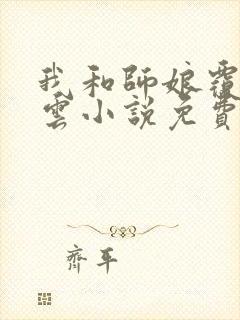 我和師娘覆
雲小說免費
齊平